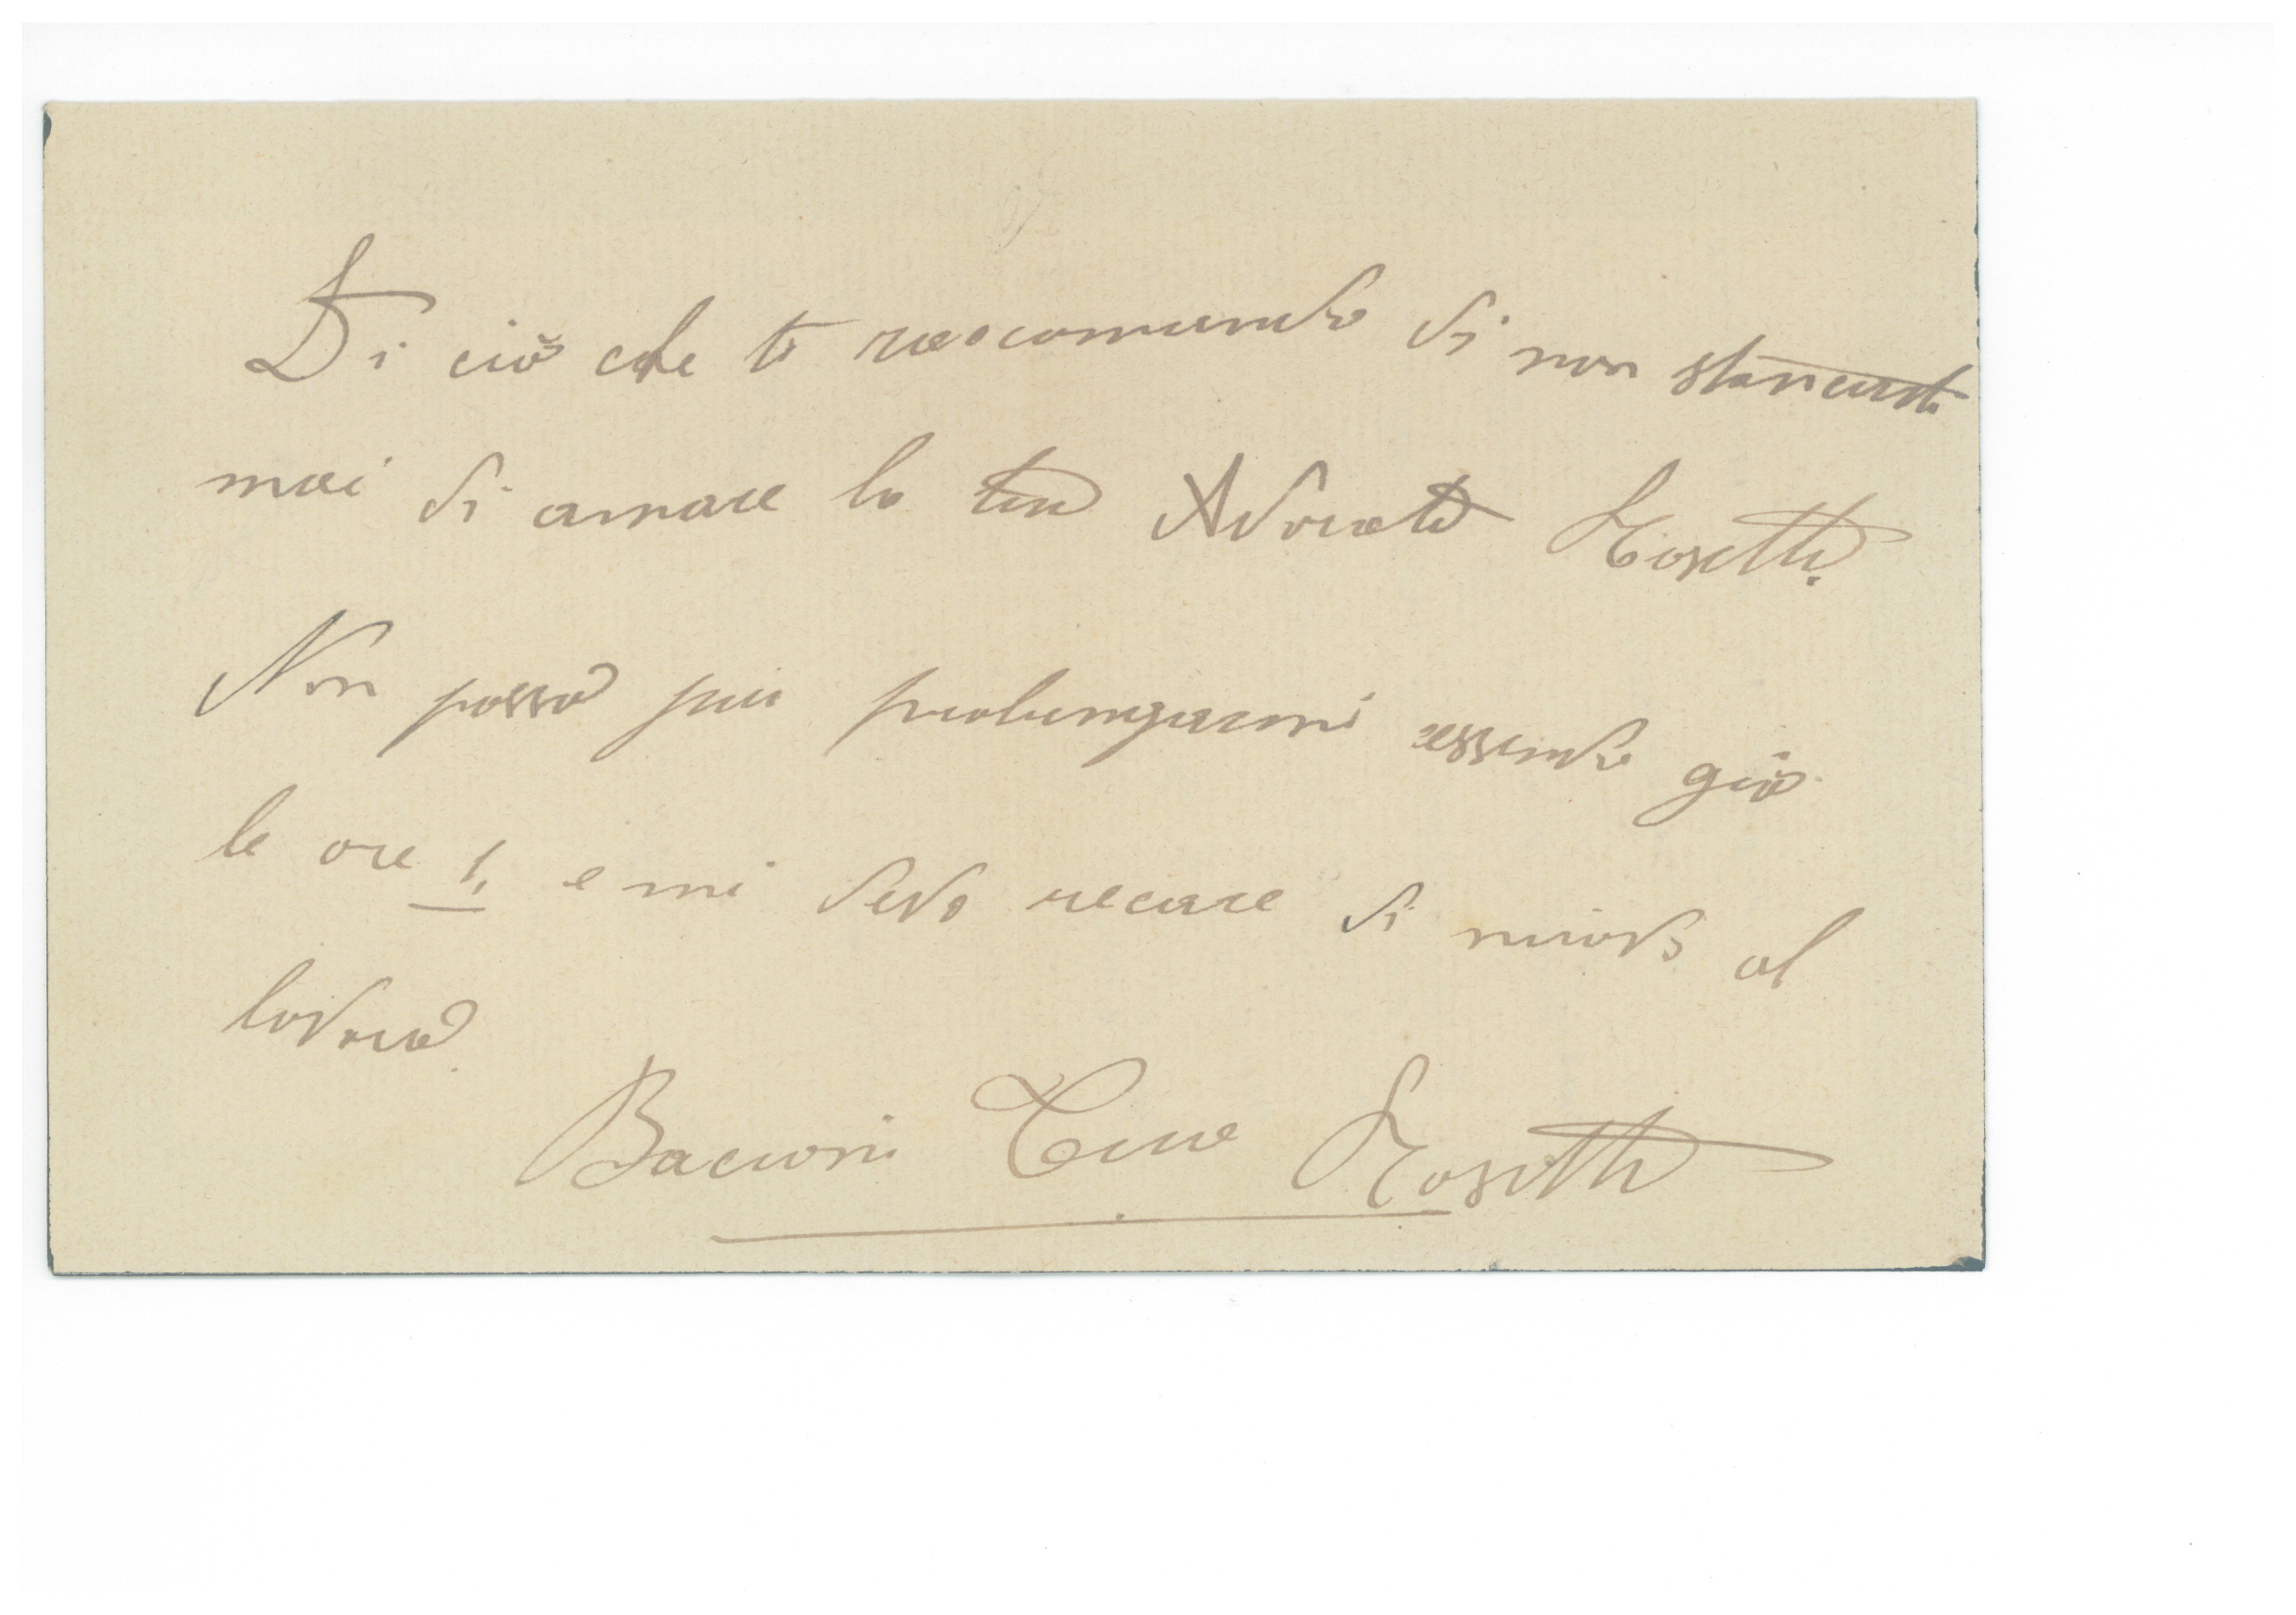 Di ciò che ti raccomando di non stancarti
mai di amare lo tuo Adorato
Non posso più prolungarmi essendo già
le ore 1, e mi devo recare di nuovo al
lavoro.
Bacioni Tuo